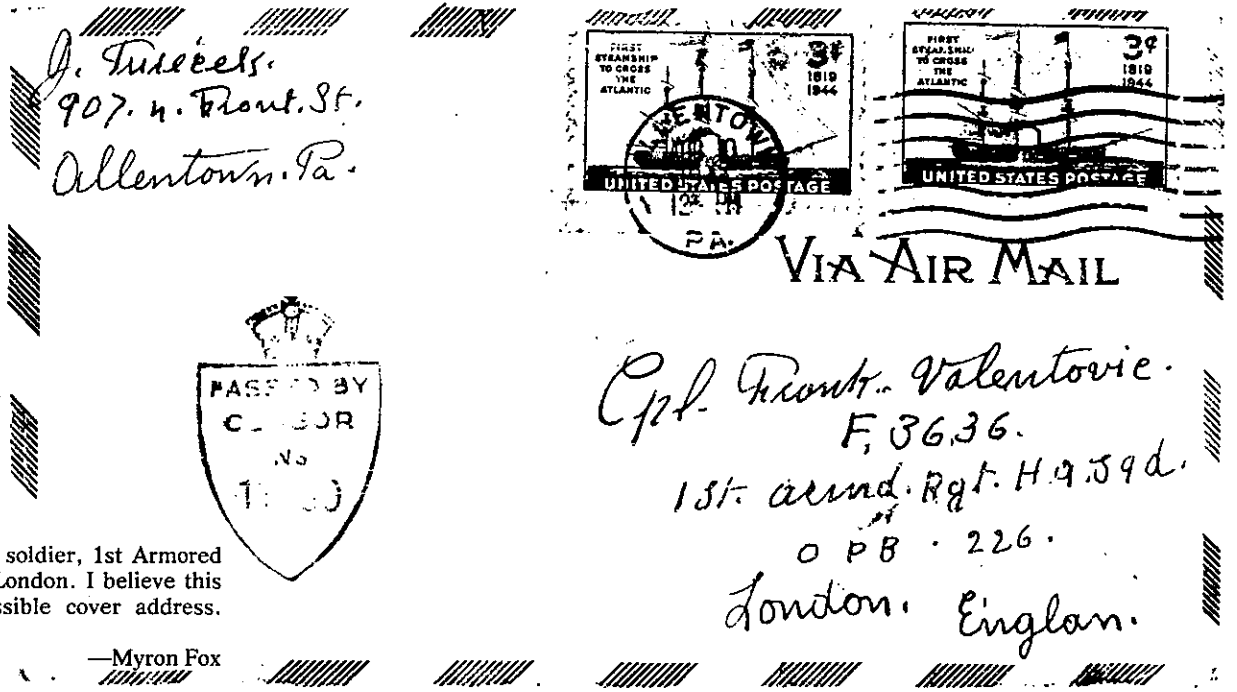 J. Turecek.
907. n. Front. St.
Allentown. Pa.
FIRST
STEAMSHIP
TO CROSS
THE
ATLANTIC
3¢
1819
1944
UNITED STATES POSTAGE
FIRST
STEAMSHIP
TO CROSS
THE
ATLANTIC
3¢
1819
1944
UNITED STATES POSTAGE
PA.
VIA AIR MAIL
PASSED BY
CENSOR
No
Cpl. Frank. Valentovic.
F, 3636.
1st. armd. Rgt. H.Q. Sqd.
O P B . 226.
London. Englan.
soldier, 1st Armored
London. I believe this
ssible cover address.
—Myron Fox